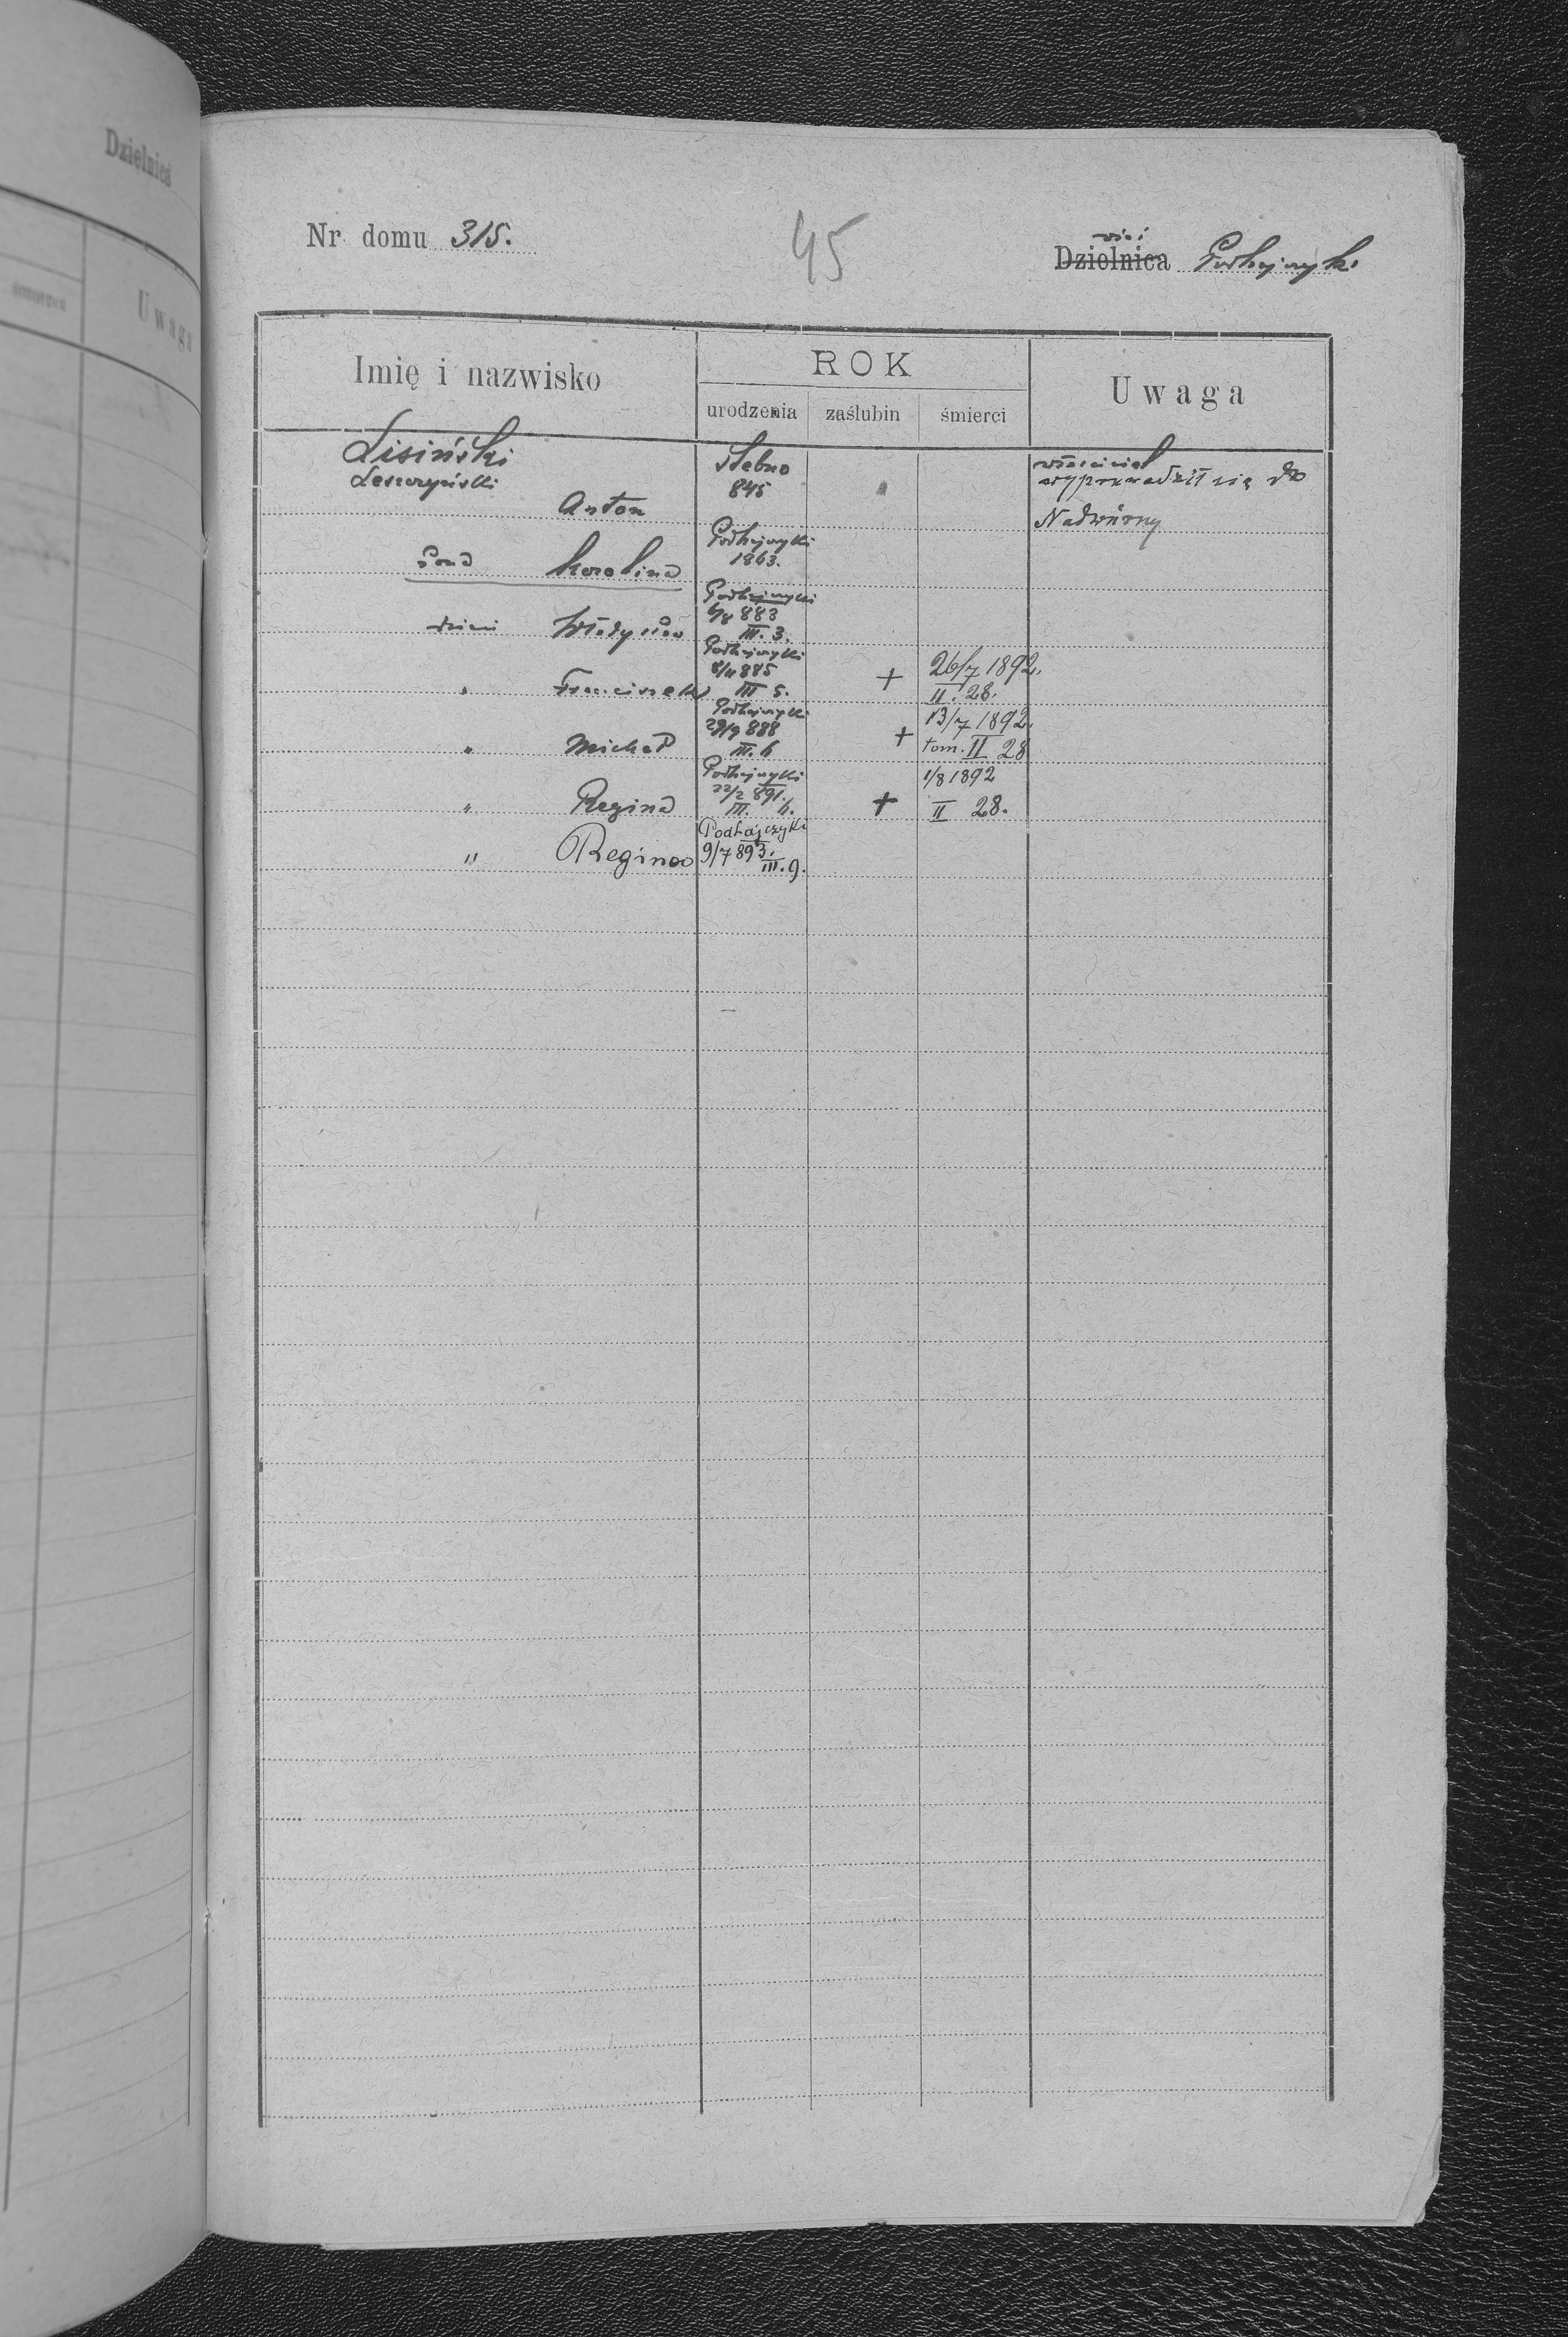 Dzielnica
śmierci
Uwaga
Nr domu 315.
45
wieś
Dzielnica Podhajczyki
Imię i nazwisko
ROK
urodzenia
zaślubin
śmierci
Uwaga
Lisiński
Leszczyński
Anton
Slebno
845
właściciel
wyprowadził się do
Nadwórny
żona Karolina
Podhajczyki
1863.
dzieci Władysław
Podhajczyki
883
III. 3.
" Franciszek
Podhajczyki
885
III 5.
+
26/7 1892.
II. 28.
" Michał
Podhajczyki
29/9 888
III. 6
+
13/7 1892.
tom. II 28
" Regina
Podhajczyki
22/2 891.
III. 6.
+
1/8 1892
II 28.
" Regina
Podhajczyki
9/7 893.
III. 9.